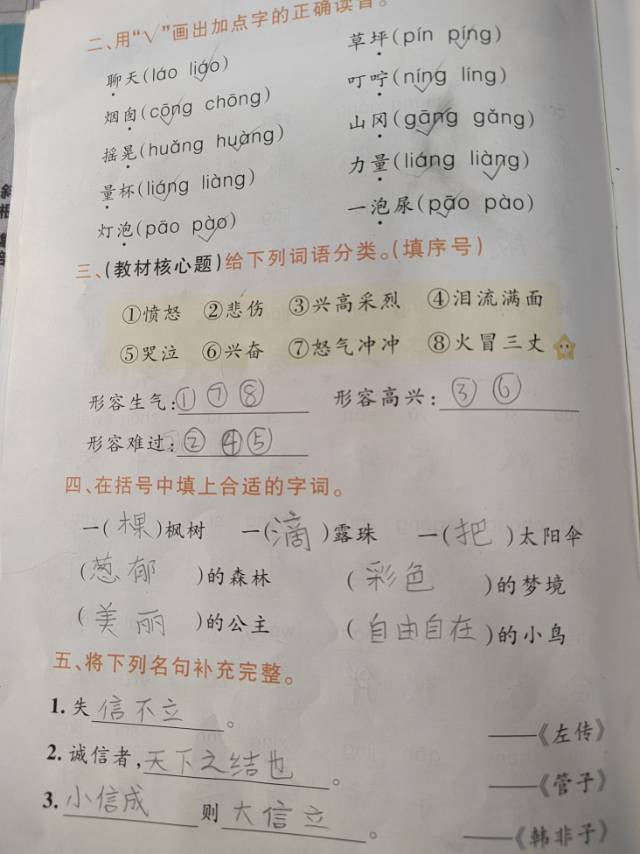 二、用“√”画出加点字的正确读音。
聊天(láo liáo) 草坪(pín píng)
烟囱(cōng chōng) 叮咛(níng líng)
摇晃(huǎng huàng) 山冈(gāng gǎng)
量杯(liáng liàng) 力量(liáng liàng)
灯泡(pāo pào) 一泡尿(pāo pào)
三、(教材核心题)给下列词语分类。(填序号)
①愤怒 ②悲伤 ③兴高采烈 ④泪流满面
⑤哭泣 ⑥兴奋 ⑦怒气冲冲 ⑧火冒三丈
形容生气:① ⑦ ⑧ 形容高兴:③ ⑥
形容难过:② ④ ⑤
四、在括号中填上合适的字词。
一(棵)枫树 一(滴)露珠 一(把)太阳伞
(葱郁)的森林 (彩色)的梦境
(美丽)的公主 (自由自在)的小鸟
五、将下列名句补充完整。
1. 失信不立。 ——《左传》
2. 诚信者,天下之结也。 ——《管子》
3. 小信成则大信立。 ——《韩非子》